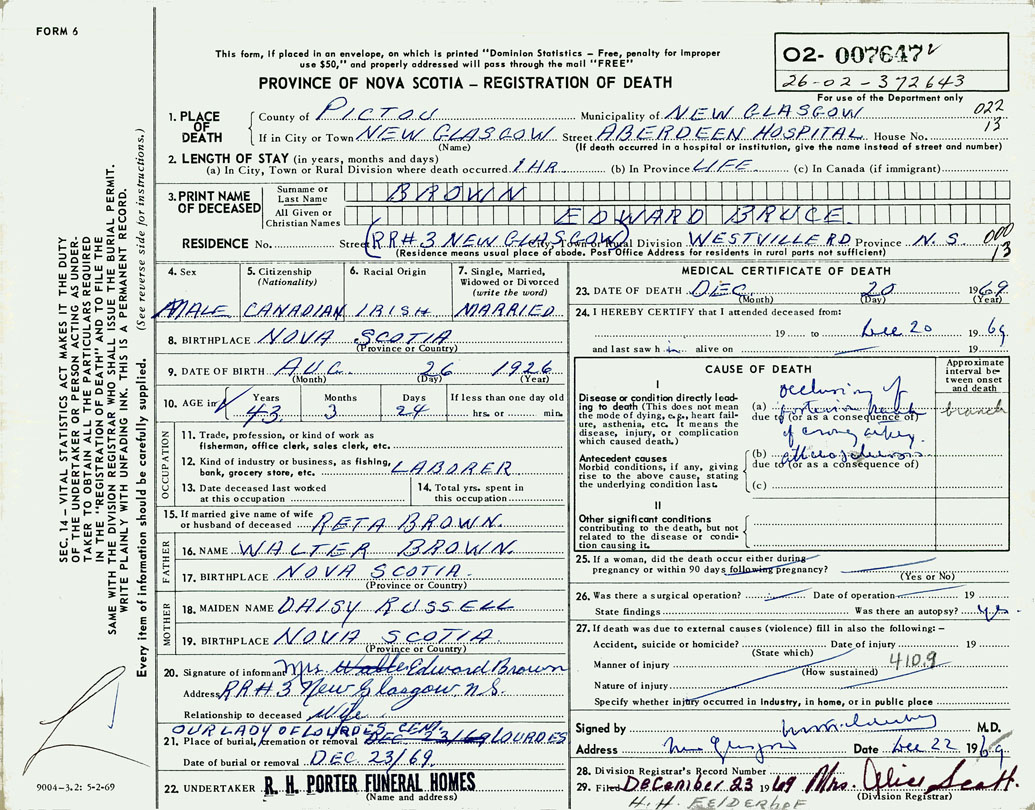 FORM 6
This form, if placed in an envelope, on which is printed "Dominion Statistics – Free, penalty for improper
use $50," and properly addressed will pass through the mail "FREE"
PROVINCE OF NOVA SCOTIA – REGISTRATION OF DEATH
02- 007647
26-02-372643
For use of the Department only
022
13
1. PLACE OF DEATH
County of PICTOU Municipality of NEW GLASGOW
If in City or Town NEW GLASGOW Street ABERDEEN HOSPITAL House No.
(Name) (If death occurred in a hospital or institution, give the name instead of street and number)
2. LENGTH OF STAY (in years, months and days)
(a) In City, Town or Rural Division where death occurred 1 HR. (b) In Province LIFE (c) In Canada (if immigrant)
3. PRINT NAME OF DECEASED
Surname or Last Name BROWN
All Given or Christian Names EDWARD BRUCE
RESIDENCE No. Street (RR#3 NEW GLASGOW) City, Town or Rural Division WESTVILLE RD Province N.S. 000
13
(Residence means usual place of abode. Post Office Address for residents in rural parts not sufficient)
4. Sex
MALE
5. Citizenship (Nationality)
CANADIAN
6. Racial Origin
IRISH
7. Single, Married, Widowed or Divorced (write the word)
MARRIED
8. BIRTHPLACE NOVA SCOTIA
(Province or Country)
9. DATE OF BIRTH AUG. 26 1926
(Month) (Day) (Year)
10. AGE in Years Months Days If less than one day old
43 3 24 hrs. or min.
OCCUPATION
11. Trade, profession, or kind of work as
fisherman, office clerk, sales clerk, etc.
12. Kind of industry or business, as fishing,
bank, grocery store, etc. LABORER
13. Date deceased last worked
at this occupation
14. Total yrs. spent in
this occupation
15. If married give name of wife
or husband of deceased RETA BROWN
FATHER
16. NAME WALTER BROWN.
17. BIRTHPLACE NOVA SCOTIA.
(Province or Country)
MOTHER
18. MAIDEN NAME DAISY RUSSELL
19. BIRTHPLACE NOVA SCOTIA
(Province or Country)
20. Signature of informant Mrs. Edward Brown
Address RR#3 New Glasgow N.S.
Relationship to deceased Wife
OUR LADY OF LOURDES CEM.
21. Place of burial, cremation or removal DEC 23/69 LOURDES
Date of burial or removal DEC. 23/69.
22. UNDERTAKER R. H. PORTER FUNERAL HOMES
(Name and address)
MEDICAL CERTIFICATE OF DEATH
23. DATE OF DEATH DEC. 20 1969
(Month) (Day) (Year)
24. I HEREBY CERTIFY that I attended deceased from:
19 to Dec 20 1969
and last saw h im alive on 19
CAUSE OF DEATH
Approximate interval between onset and death
I
Disease or condition directly leading to death (This does not mean the mode of dying, e.g., heart failure, asthenia, etc. It means the disease, injury, or complication which caused death.)
(a) occlusion of
posterior branch
due to (or as a consequence of)
of coronary artery.
branch
Antecedent causes
Morbid conditions, if any, giving rise to the above cause, stating the underlying condition last.
(b) atherosclerosis
due to (or as a consequence of)
(c)
II
Other significant conditions
contributing to the death, but not related to the disease or condition causing it.
25. If a woman, did the death occur either during
pregnancy or within 90 days following pregnancy?
(Yes or No)
26. Was there a surgical operation? Date of operation 19
State findings Was there an autopsy? yes
27. If death was due to external causes (violence) fill in also the following: –
Accident, suicide or homicide? Date of injury 19
(State which)
Manner of injury 4109
(How sustained)
Nature of injury
Specify whether injury occurred in industry, in home, or in public place
Signed by M.D.
Address New Glasgow Date Dec 22 1969
28. Division Registrar's Record Number
29. Filed December 23 1969 Mrs. Alice Scott.
(Division Registrar)
H. H. EELDERHOF
SEC. 14 – VITAL STATISTICS ACT MAKES IT THE DUTY
OF THE UNDERTAKER OR PERSON ACTING AS UNDERTAKER
TO OBTAIN ALL THE PARTICULARS REQUIRED
IN THE "REGISTRATION OF DEATH" AND TO FILE THE
SAME WITH THE DIVISION REGISTRAR WHO SHALL ISSUE THE BURIAL PERMIT.
WRITE PLAINLY WITH UNFADING INK. THIS IS A PERMANENT RECORD.
Every item of information should be carefully supplied. (See reverse side for instructions.)
9004–3.2: 5-2-69